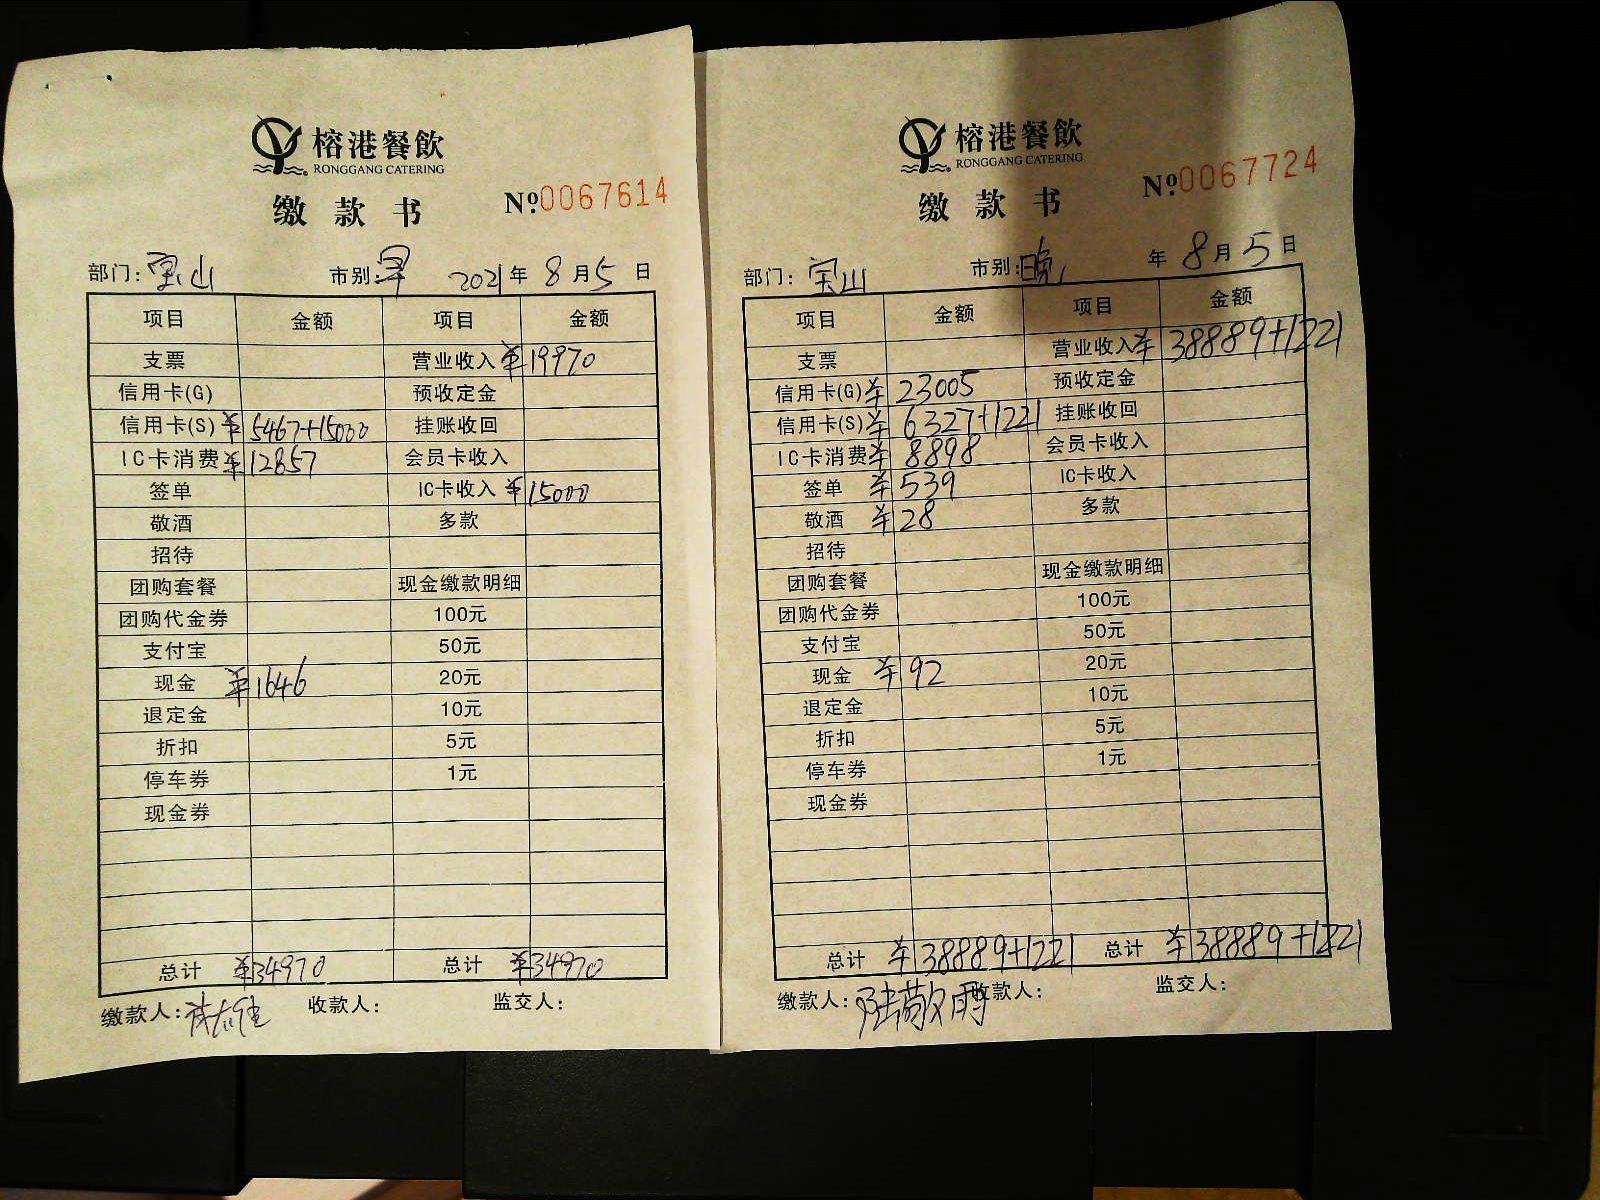 榕港餐飲
RONGGANG CATERING
缴款书 Nº.0067614
部门:宝山 市别:早 2021年8月5日
项目 金额 项目 金额
支票 营业收入 ¥19970
信用卡(G) 预收定金
信用卡(S) ¥5467+15000 挂账收回
IC卡消费 ¥12857 会员卡收入
签单 IC卡收入 ¥15000
敬酒 多款
招待
团购套餐 现金缴款明细
团购代金券 100元
支付宝 50元
现金 ¥1646 20元
退定金 10元
折扣 5元
停车券 1元
现金券
总计 ¥34970 总计 ¥34970
缴款人: 收款人: 监交人:
榕港餐飲
RONGGANG CATERING
缴款书 Nº.0067724
部门:宝山 市别:晚 年8月5日
项目 金额 项目 金额
支票 营业收入 ¥38889+1221
信用卡(G) ¥23005 预收定金
信用卡(S) ¥6327+1221 挂账收回
IC卡消费 ¥8898 会员卡收入
签单 ¥539 IC卡收入
敬酒 ¥28 多款
招待
团购套餐 现金缴款明细
团购代金券 100元
支付宝 50元
现金 ¥92 20元
退定金 10元
折扣 5元
停车券 1元
现金券
总计 ¥38889+1221 总计 ¥38889+1221
缴款人:陆敬雨 收款人: 监交人: